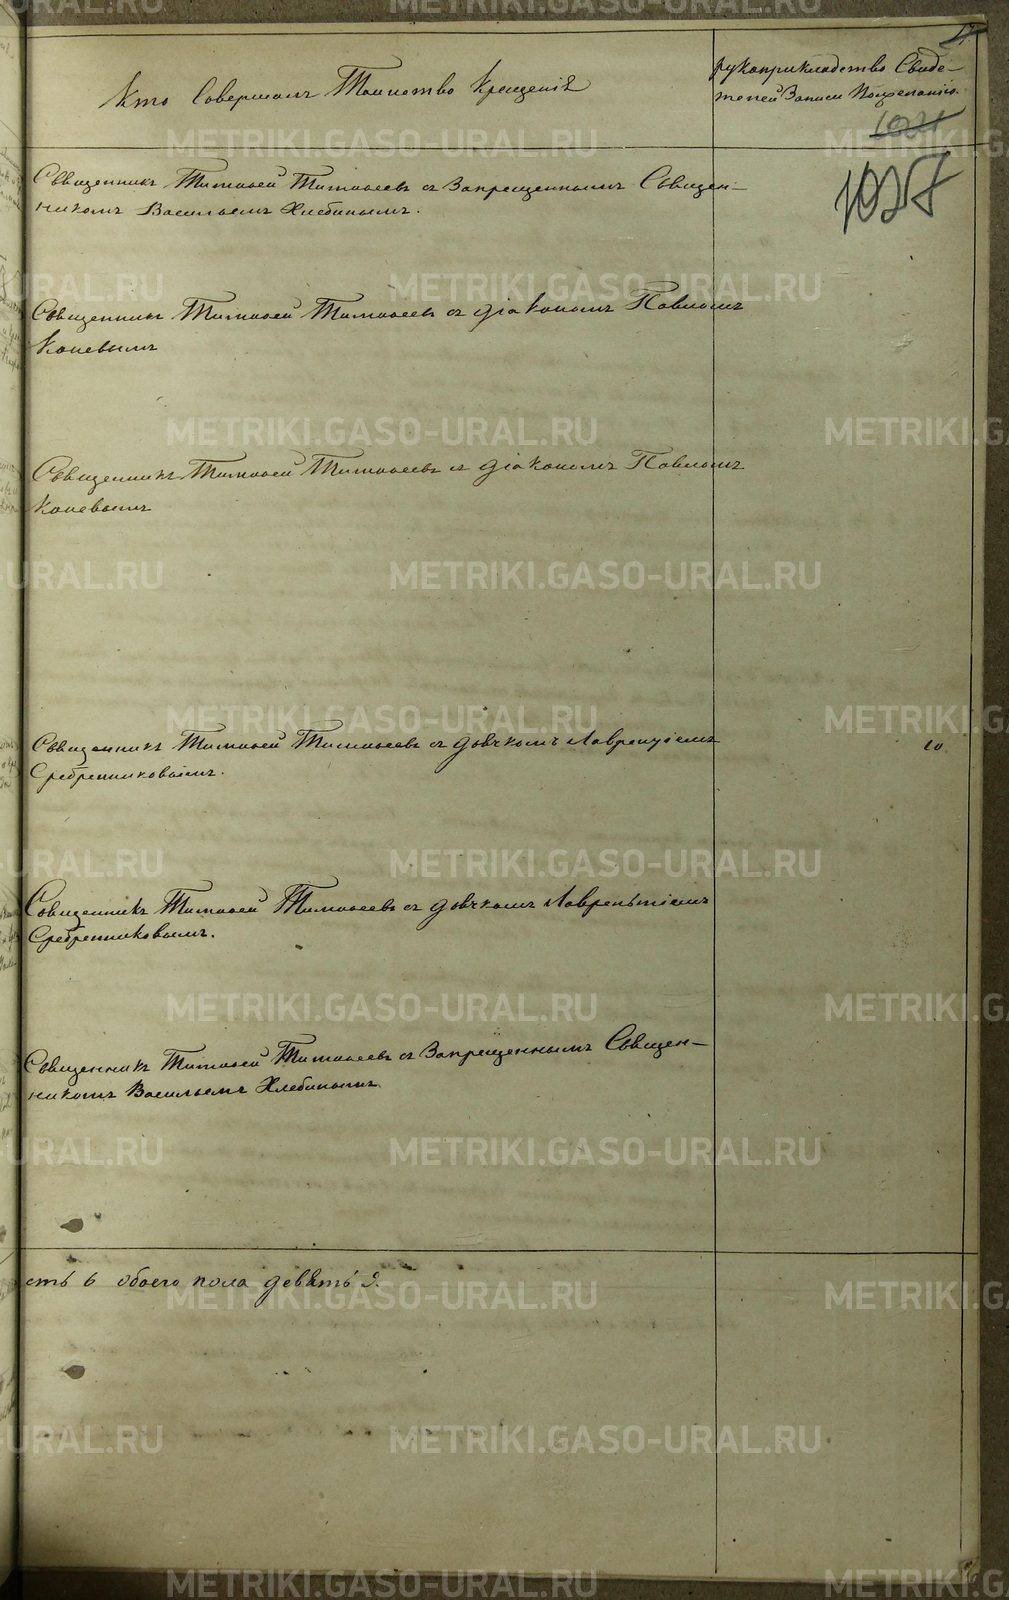 Кто Совершалъ Таинство Крещенія
рукоприкладство Свиде-
телей Записи По желанію.
1027
Священникъ Тимофей Тимофеевъ съ Запрещеннымъ Священ-
никомъ Васильемъ Хлебинымъ.
Священникъ Тимофей Тимофеевъ съ діакономъ Павломъ
Коневымъ
Священникъ Тимофей Тимофеевъ съ діакономъ Павломъ
Коневымъ
Священникъ Тимофей Тимофеевъ съ дьячкомъ Лаврентіемъ
Сребренниковымъ.
Священникъ Тимофей Тимофеевъ съ дьячкомъ Лаврентіемъ
Сребренниковымъ.
Священникъ Тимофей Тимофеевъ съ Запрещеннымъ Священ-
никомъ Васильемъ Хлебинымъ
сть 6 обоего пола девять 9.
METRIKI.GASO-URAL.RU